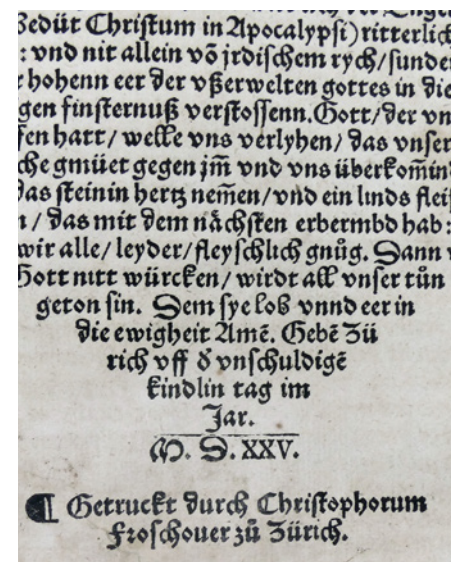 bedüt Christum in Apocalypsi) ritterlich
: vnd nit allein võ jrdischem rych/ sunder
hohenn eer der vßerwelten gottes in die
gen finsternuß verstossenn. Gott/ der vn
fen hatt/ welle vns verlyhen/ das vnser
che gmüet gegen jm̃ vnd vns überkom̃ind
das steinin hertz nem̃en/ vnd ein linds fleis
n/ das mit dem nächsten erbermbd hab:
wir alle/ leyder/ fleyschlich gnůg. Dann w
Gott nitt würcken/ wirdt all vnser tůn
geton sin. Dem sye lob vnnd eer in
die ewigheit Amẽ. Gebẽ Zü
rich vff ð vnschuldigẽ
kindlin tag im
Jar.
M. D. XXV.
¶ Getruckt durch Christophorum
Froschouer zů Zürich.